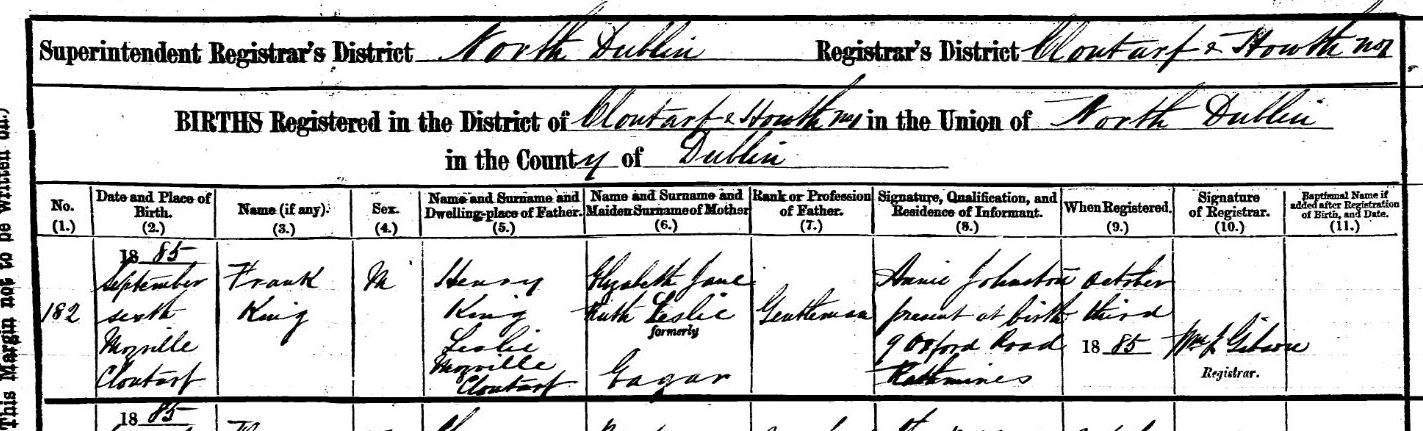 Superintendent Registrar's District North Dublin Registrar's District Clontarf & Howth No 1
BIRTHS Registered in the District of Clontarf & Howth No 1 in the Union of North Dublin
in the County of Dublin
This Margin not to be written on.)
No.
(1.)
Date and Place of
Birth.
(2.)
Name (if any).
(3.)
Sex.
(4.)
Name and Surname and
Dwelling-place of Father.
(5.)
Name and Surname and
Maiden Surname of Mother
(6.)
Rank or Profession
of Father.
(7.)
Signature, Qualification, and
Residence of Informant.
(8.)
When Registered.
(9.)
Signature
of Registrar.
(10.)
Baptismal Name if
added after Registration
of Birth, and Date.
(11.)
182
1885
September
sixth
Moyville
Clontarf
Frank
King
M
Henry
King
Leslie
Moyville
Clontarf
Elizabeth Jane
Ruth Leslie
formerly
Eagar
Gentleman
Annie Johnston
present at birth
9 Oxford Road
Rathmines
October
third
1885
Wm J Gibson
Registrar.
1885